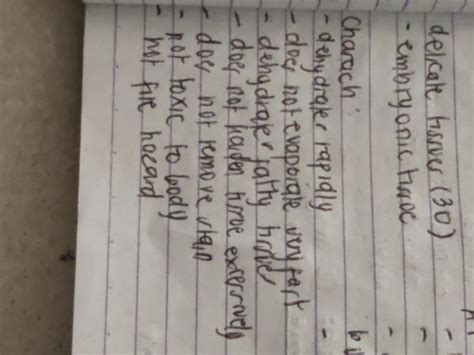 delicate tissues (30)
- embryonic tissue
Charach :
- dehydrates rapidly
- does not evaporate very fast
- dehydrates fatty tissues
- does not harden tissue excessively
- does not remove stain
- not toxic to body
- not fire hazard